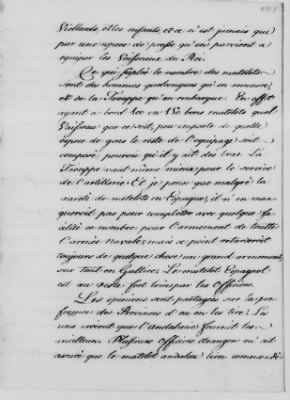 Vieillards, et les enfants, et ce n'est jamais que
par une espece de presse qu'on parvient a
equiper les Vaisseaux du Roi.
Ce qui suplée le nombre des matelots
sont des hommes quelconques qu'on ramasse,
et de la Trouppe qu'on embarque. En effet
ayant a bord 100 ou 150 bons matelots quel
Vaisseau que ce soit, peu importe de quelle
espece de gens le reste de l'equipage soit
composé pourvu qu'il y ait des bras. La
Trouppe vaut même mieux pour le service
de l'artillerie. Et je pense que malgré la
rareté de matelots en Espagne, il n'en man-
queroit pas pour completter avec quelque fa-
cilité ce nombre pour l'armement de toutte
l'armée navale; mais ce point retarderoit
toujours de quelque chose un grand armement,
sur tout en Gallice. Le matelot Espagnol
est au reste fort loué par les Officiers.
Les opinions sont partagées sur la pre-
ference des Provinces d'ou on les tire. Les
uns croient que l'andalousie fournit les
meilleurs. Plusieurs Officiers étrangers m'ont
assuré que le matelot andalou bien commandé